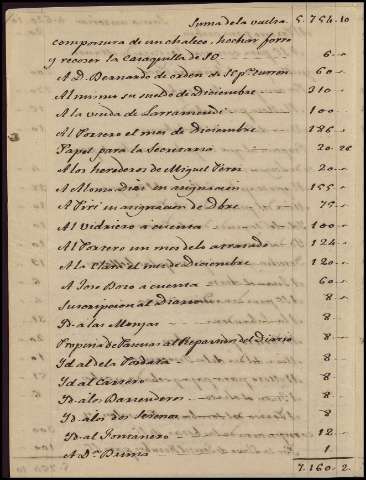 Suma de la vuelta 5.754.10
compostura de un chaleco, hechar forro
y recoser la casaquilla de SE 6
A Dn. Bernardo de orden de
60
Al mismo su sueldo de diciembre 210
A la viuda de Larramendi 100
Al Portero el mes de diciembre 186
Papel para la Secretaria 20.26
A los herederos de Miguel Perez 20
A Alonso Diaz su asignacion 155
A su asignacion de Dbre 75
Al Vidriero a cuenta 100
Al Portero un mes de lo atrasado 124
A la Clara el mes de diciembre 120
A Jose Bozo a cuenta 60
Suscripcion al Diario 8
Id. a las Monjas 8
Propina de Pascuas al Repartidor del Diario 8
Id. al de la 8
Id. al Cartero 8
Id. a los Barrenderos 8
Id. a los dos Serenos 8
Id. al Fontanero 12
A Dn. Bruno 1
7.160.2